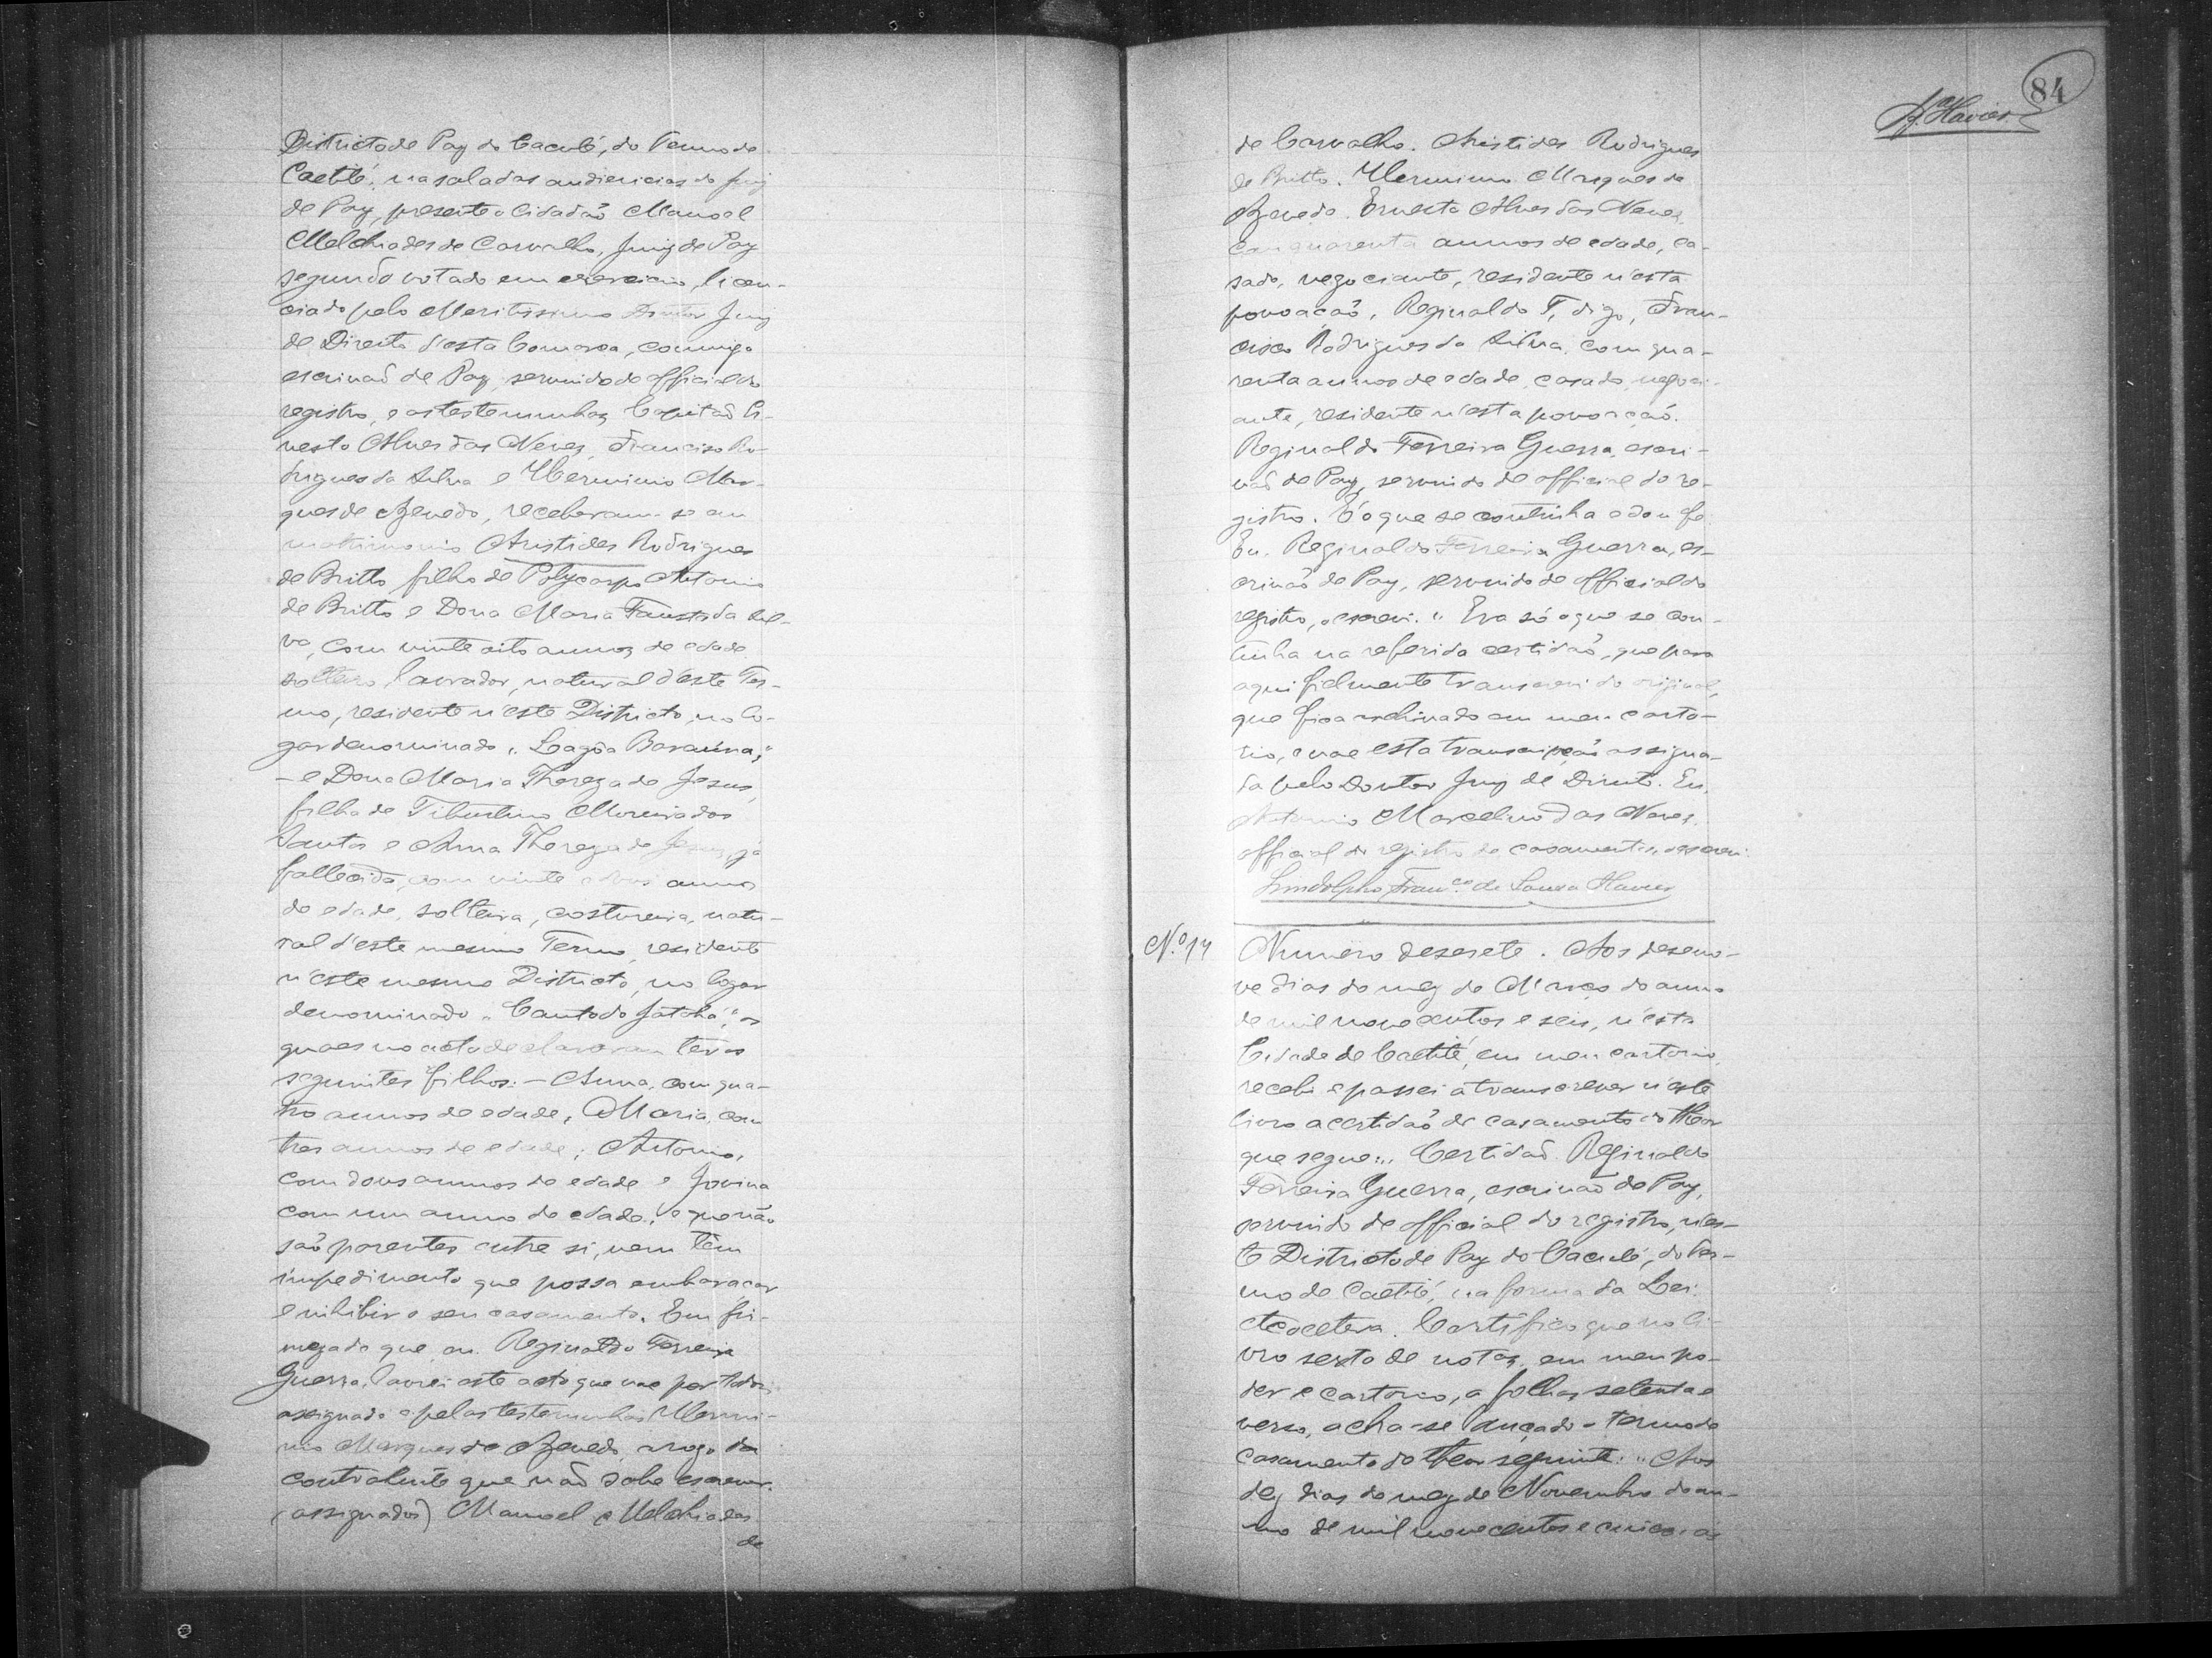 Districto de Paz do Caculé, do Termo de
Caetité, na sala das audiencias do Juiz
de Paz, presente o Cidadão Manoel
Melchiades de Carvalho, Juiz de Paz
segundo votado em exercicio, licen-
ciado pelo Meritissimo Doutor Juiz
de Direito d'esta Comarca, commigo
escrivaõ de Paz, servindo de official do
registro, e as testemunhas Capitaõ Er-
nesto Alves das Neves, Francisco Ro-
drigues da Silva e Herminio Mar-
ques de Azevedo, receberam-se em
matrimonio Aristides Rodrigues
de Britto filho de Polycarpo Antonio
de Britto e Dona Maria Fausta da Sil-
va, com vinte oito annos de edade
solteiro, lavrador, natural d'este Ter-
mo, residente n'este Districto, no lo-
gar denominado "Lagôa Baraúna,"
- e Dona Maria Thereza de Jesus,
filha de Tiburtino Moreira dos
Santos e Anna Thereza de Jesus, já
fallecida, com vinte e dous annos
de edade, solteira, costureira, natu-
ral d'este mesmo Termo, residente
n'este mesmo Districto, no logar
denominado "Canto do Jatobá", os
quaes no acto declararam ter os
seguintes filhos: - Anna, com qua-
tro annos de edade, Maria, com
tres annos de edade; Antonio,
com dous annos de edade e Jovina
com um anno de edade, e que não
saõ parentes entre si, nem têm
impedimento que possa embaraçar
e inhibir o seu casamento. Em fir-
meza do que eu Reginaldo Ferreira
Guerra, lavrei este acto que vae por todos
assignado e pelas testemunhas Hermi-
nio Marques de Azevedo, a rogo da
contrahente que naõ sabe escrever.
(assignados) Manoel Melchiades
de
84
de Carvalho. Aristides Rodrigues
de Britto. Herminio Marques de
Azevedo. Ernesto Alves das Neves,
com quarenta annos de edade, ca-
sado, negociante, residente n'esta
povoaçaõ, Reginaldo F, digo, Fran-
cisco Rodrigues da Silva, com qua-
renta annos de edade, casado, negoci-
ante, residente n'esta povoaçaõ.
Reginaldo Ferreira Guerra, escri-
vaõ de Paz, servindo de official do re-
gistro. É o que se continha e dou fé.
Eu, Reginaldo Ferreira Guerra, es-
crivaõ de Paz, servindo de official do
registro, o escrevi." Era só o que se con-
tinha na referida certidaõ, que para
aqui fielmente transcrevi do original,
que fica archivado em meu carto-
rio, e vae esta transcripçaõ assigna-
da pelo Doutor Juiz de Direito. Eu,
Antonio Marcelino das Neves,
official do registro de casamentos, o escrevi.
Lindolpho Franco. de Sousa Xavier
N.º 17
Numero desesete. Aos deseno-
ve dias do mez de Março do anno
de mil novecentos e seis, n'esta
Cidade de Caetité, em meu cartorio,
recebi e passei a transcrever n'este
livro a certidaõ de casamento do theor
que segue: "Certidaõ. Reginaldo
Ferreira Guerra, escrivaõ de Paz,
servindo de official do registro, n'es-
te Districto de Paz do Caculé, do Ter-
mo de Caetité, na forma da Lei.
etecetera. Certifico que no li-
vro sexto de notas, em meu po-
der e cartorio, a folhas setenta e
verso, acha-se lançado o termo de
casamento do theor seguinte: "Aos
dez dias do mez de Novembro do an-
no de mil novecentos e cinco, ás